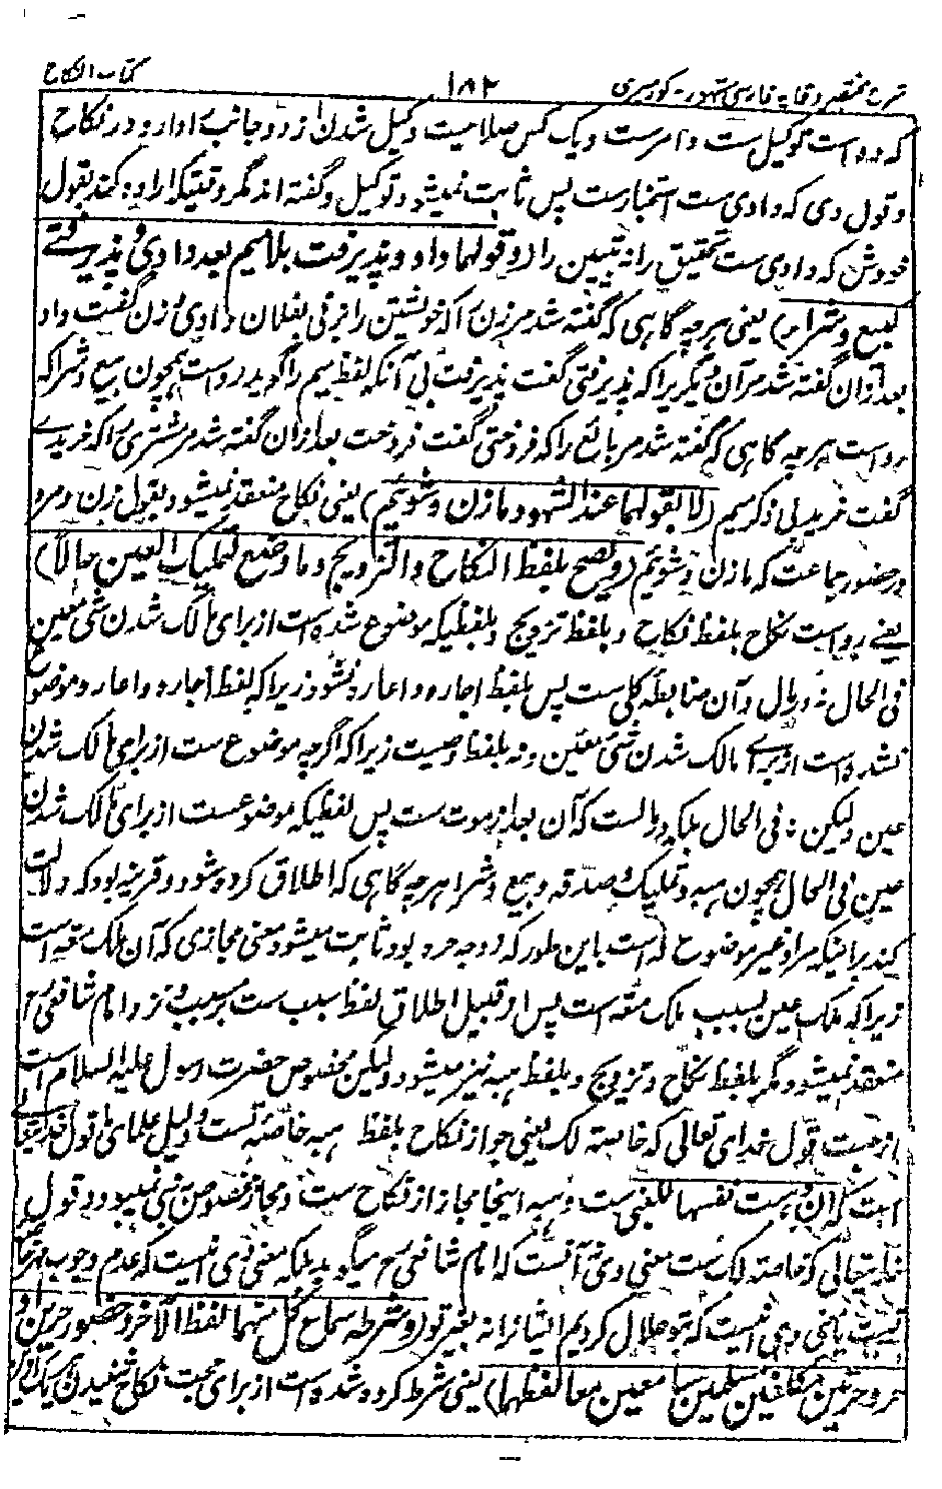 کتاب النکاح ۱۸۲ شرح مختصر وقایه فارسی مشهور - کورسیری
که رواست توکیل ست و امرست و یک کس صلاحیت وکیل شدن از دو جانب ادارو در نکاح
و قول وی که دادی ست استخبارست پس ثابت نمیشود توکیل و گفته اند مگر وقتیکه اراده کند بقول
خودش که دادی ست تحقیق را نه تبیین را (و قولهما داد و پذیرفت بلا میم بعد دادی و پذیرفتی
کبیع و شراء) یعنی هرچه گاهی که گفته شد مرزن را که خویشتن را بزنی بفلان دادی زن گفت داد
بعد ازان گفته شد مر آن دیگریرا که پذیرفتی گفت پذیرفت بی آنکه لفظ میم را گوید رواست همچون بیع و شرا که
رواست هرچه گاهی که گفته شد مر بائع را که فروختی گفت فروخت بعد ازان گفته شد مر مشتری را که خریدے
گفت خرید بی ذکر میم (لا بقولهما عند الشهود ما زن و شوئیم) یعنی نکاح منعقد نمیشود بقول زن و مرد
در حضور جماعت که ما زن و شوئیم (ویصح بلفظ النکاح و التزویج و ما وضع لتملیک العین حالا)
یعنے رواست نکاح بلفظ نکاح و بلفظ تزویج و بلفظیکه موضوع شده است از برای مالک شدن شئ معین
فی الحال نه در مال و آن ضابطه کلی ست پس بلفظ اجاره و اعاره نشود زیرا که لفظ اجاره و اعاره موضوع
نشده است از برای مالک شدن شئ معین و نه بلفظ وصیت زیرا که اگرچه موضوع ست از برای مالک شدن
عین ولیکن نه فی الحال بلکه در مالست که آن بعد از موت ست پس لفظیکه موضوعست از برای مالک شدن
عین فی الحال همچون هبه و تملیک و صدقه و بیع و شرا هرچه گاهی که اطلاق کرده شود و قرینه بود که دلالت
کند بر اینکه مراد غیر موضوع له است باین طور که زوجه حره بود ثابت میشود معنی مجازی که آن ملک متعه است
زیرا که ملک عین سبب ملک متعه است پس از قبیل اطلاق لفظ سبب ست بر مسبب و نزد امام شافعی رح
منعقد نمیشود مگر بلفظ نکاح و تزویج و بلفظ هبه نیز میشود ولیکن مخصوص حضرت رسول علیه السلام است
از جهت قول خدای تعالی که خالصة لک یعنی جواز نکاح بلفظ هبه خاصه تست و دلیل علمای ما قول خدایتعالی
است که ان وهبت نفسها للنبی ست و هبه اینجا مجاز از نکاح ست و مجاز مخصوص بنبی نمیبود و قول
خدایتعالی که خالصة لک ست معنی وی نه آنست که امام شافعی رح میگوید بلکه معنی وی اینست که عدم وجوب مهر خاصه
تست یا معنی وی اینست که بتو حلال کردیم ایشانرا نه بغیر تو (و شرطه سماع کل منهما لفظ الآخر و حضور حرین او
حر و حرتین مکلفین مسلمین سامعین معا لفظهما) یعنی شرط کرده شده است از برای صحت نکاح شنیدن هر یک از